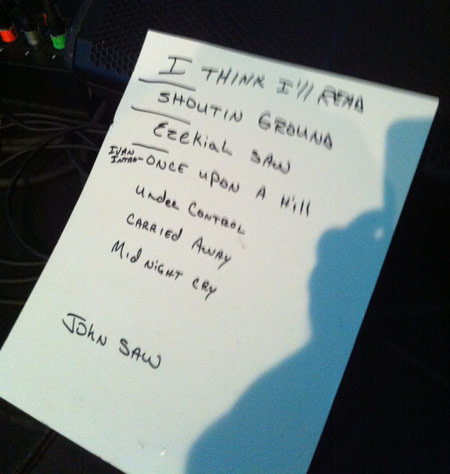 I THINK I'll READ
SHOUTIN GROUND
EzekiaL SAW
IVAN INTRO-ONCE UPON A Hill
UNDER CONTROL
CARRIED AWAY
MIDNIGHT CRY
JOHN SAW